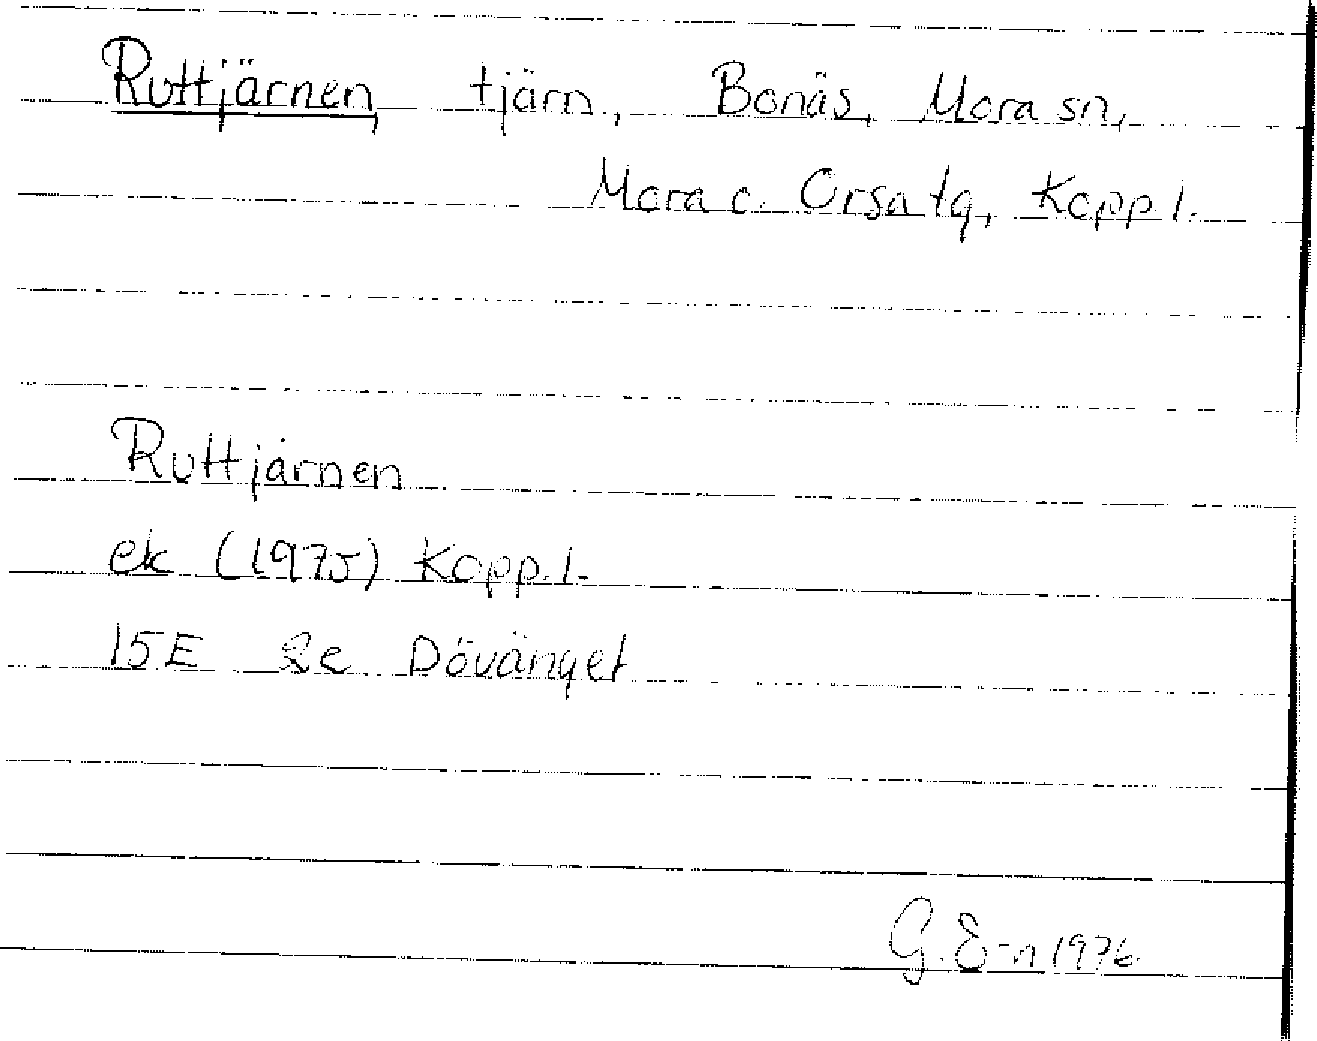 Ruttjärnen, tjärn, Bonäs, Mora sn,
Mora o. Orsa tg, Kopp. l.
Ruttjärnen
ek (1975) Kopp. l.
15E 8e Dövänget
G. E-n 1976